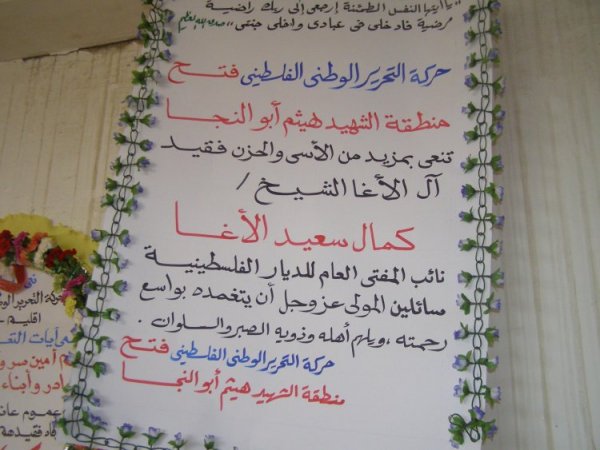 يا أيتها النفس المطمئنة إرجعي إلى ربك راضية
مرضية فادخلي في عبادي وادخلي جنتي ،، صدق الله العظيم
حركة التحرير الوطني الفلسطيني فتح
منطقة الشهيد هيثم أبو النجا
تنعى بمزيد من الأسى والحزن فقيد
آل الأغا الشيخ /
كمال سعيد الأغا
نائب المفتى العام للديار الفلسطينية
سائلين المولى عز وجل أن يتغمده بواسع
رحمته ، ويلهم أهله وذويه الصبر والسلوان .
حركة التحرير الوطني الفلسطيني فتح
منطقة الشهيد هيثم أبو النجا
كة التحرير الوط
اقليم
آيات التق
أمين سر و
ادر وأبناء
عموم عا
فاة فقيدهم